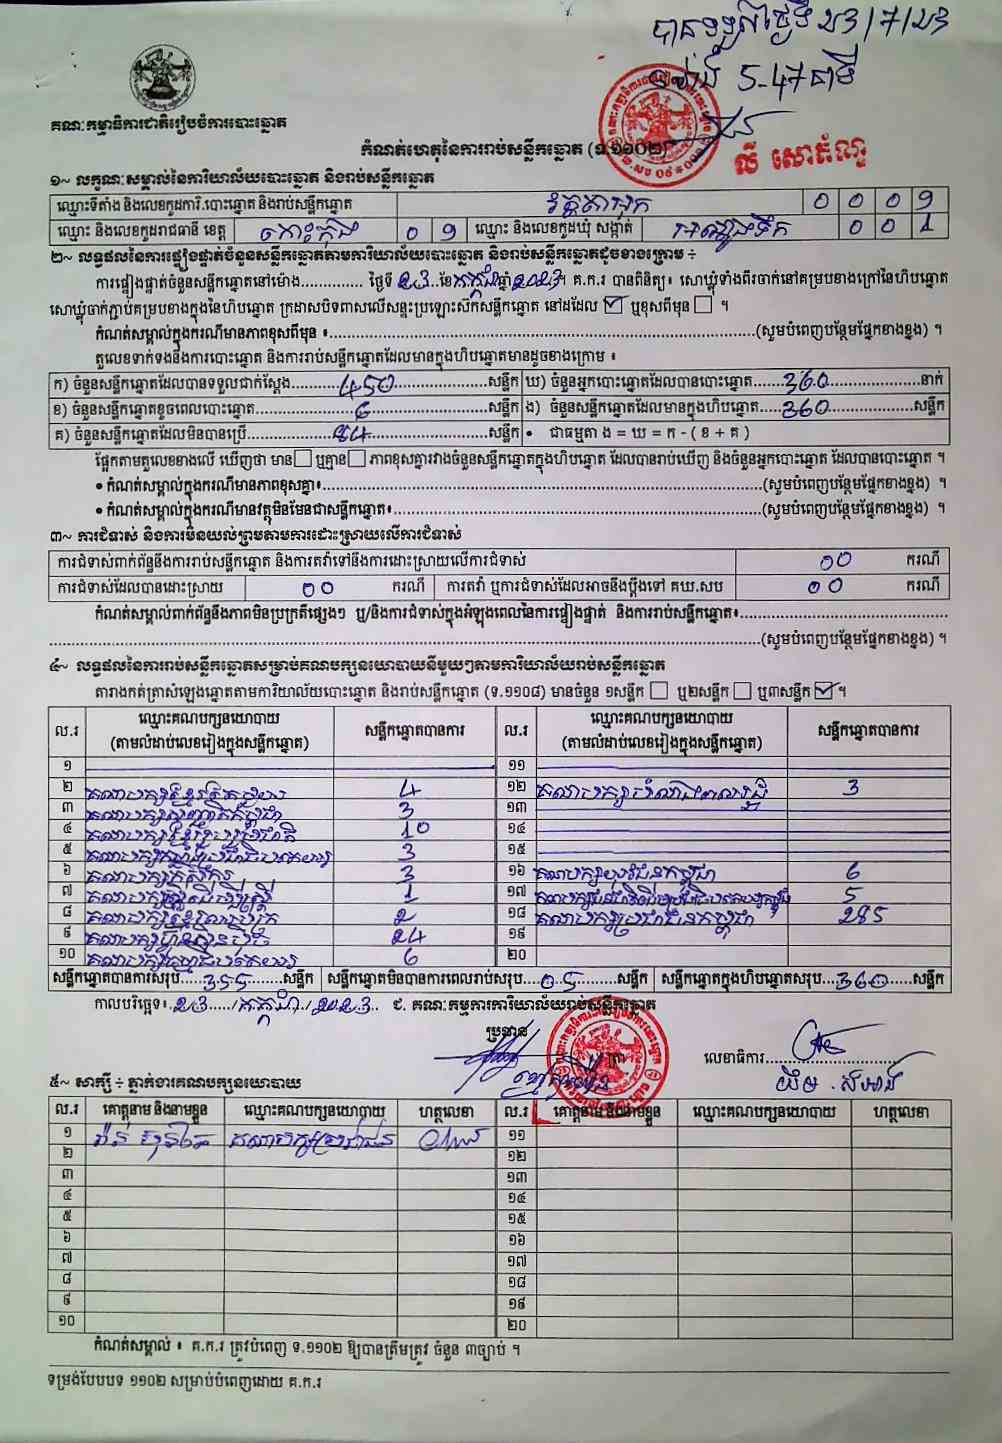 បានទទួលថ្ងៃទី 23/7/23
ម៉ោង 5-47 នាទី
គណៈកម្មាធិការជាតិរៀបចំការបោះឆ្នោត
កំណត់ហេតុនៃការរាប់សន្លឹកឆ្នោត (ទ.១១០២)
លី សោភ័ណ្ឌ
១~ លក្ខណៈសម្គាល់នៃការិយាល័យបោះឆ្នោត និងរាប់សន្លឹកឆ្នោត
ឈ្មោះទីតាំង និងលេខកូដការិ.បោះឆ្នោត និងរាប់សន្លឹកឆ្នោត 0 0 0 9
ឈ្មោះ និងលេខកូដរាជធានី ខេត្ត កោះកុង 0 9 ឈ្មោះ និងលេខកូដឃុំ សង្កាត់ 0 0 1
២~ លទ្ធផលនៃការផ្ទៀងផ្ទាត់ចំនួនសន្លឹកឆ្នោតតាមការិយាល័យបោះឆ្នោត និងរាប់សន្លឹកឆ្នោតដូចខាងក្រោម ÷
ការផ្ទៀងផ្ទាត់ចំនួនសន្លឹកឆ្នោតនៅម៉ោង.............. ថ្ងៃទី 23 ខែ កក្កដា ឆ្នាំ 2023 ។ គ.ក.រ បានពិនិត្យ៖ សោឃ្លុំទាំងពីរចាក់នៅគម្របខាងក្រៅនៃហិបឆ្នោត
សោឃ្លុំចាក់ភ្ជាប់គម្របខាងក្នុងនៃហិបឆ្នោត ក្រដាសបិទពាសលើសន្ទះប្រឡោះស៊កសន្លឹកឆ្នោត នៅដដែល ☑ ឬខុសពីមុន ☐ ។
កំណត់សម្គាល់ក្នុងករណីមានភាពខុសពីមុន ៖..........(សូមបំពេញបន្ថែមផ្នែកខាងខ្នង) ។
តួលេខទាក់ទងនឹងការបោះឆ្នោត និងការរាប់សន្លឹកឆ្នោតដែលមានក្នុងហិបឆ្នោតមានដូចខាងក្រោម ៖
ក) ចំនួនសន្លឹកឆ្នោតដែលបានទទួលជាក់ស្តែង 450 សន្លឹក ឃ) ចំនួនអ្នកបោះឆ្នោតដែលបានបោះឆ្នោត 360 នាក់
ខ) ចំនួនសន្លឹកឆ្នោតខូចពេលបោះឆ្នោត 6 សន្លឹក ង) ចំនួនសន្លឹកឆ្នោតដែលមានក្នុងហិបឆ្នោត 360 សន្លឹក
គ) ចំនួនសន្លឹកឆ្នោតដែលមិនបានប្រើ 84 សន្លឹក • ជាធម្មតា ង = ឃ = ក - ( ខ + គ )
ផ្អែកតាមតួលេខខាងលើ ឃើញថា មាន ☐ ឬគ្មាន ☐ ភាពខុសគ្នារវាងចំនួនសន្លឹកឆ្នោតក្នុងហិបឆ្នោត ដែលបានរាប់ឃើញ និងចំនួនអ្នកបោះឆ្នោត ដែលបានបោះឆ្នោត ។
• កំណត់សម្គាល់ក្នុងករណីមានភាពខុសគ្នា៖..........(សូមបំពេញបន្ថែមផ្នែកខាងខ្នង) ។
• កំណត់សម្គាល់ក្នុងករណីមានវត្ថុមិនមែនជាសន្លឹកឆ្នោត៖..........(សូមបំពេញបន្ថែមផ្នែកខាងខ្នង) ។
៣~ ការជំទាស់ និងការមិនយល់ព្រមតាមការដោះស្រាយលើការជំទាស់
ការជំទាស់ពាក់ព័ន្ធនឹងការរាប់សន្លឹកឆ្នោត និងការតវ៉ាទៅនឹងការដោះស្រាយលើការជំទាស់ 00 ករណី
ការជំទាស់ដែលបានដោះស្រាយ 00 ករណី ការតវ៉ា ឬការជំទាស់ដែលអាចនឹងប្តឹងទៅ គឃ.សប 00 ករណី
កំណត់សម្គាល់ពាក់ព័ន្ធនឹងភាពមិនប្រក្រតីផ្សេងៗ ឬ/និងការជំទាស់ក្នុងអំឡុងពេលនៃការផ្ទៀងផ្ទាត់ និងការរាប់សន្លឹកឆ្នោត៖..........
..........(សូមបំពេញបន្ថែមផ្នែកខាងខ្នង) ។
៤~ លទ្ធផលនៃការរាប់សន្លឹកឆ្នោតសម្រាប់គណបក្សនយោបាយនីមួយៗតាមការិយាល័យរាប់សន្លឹកឆ្នោត
តារាងកត់ត្រាសំឡេងឆ្នោតតាមការិយាល័យបោះឆ្នោត និងរាប់សន្លឹកឆ្នោត (ទ.១១០៨) មានចំនួន ១សន្លឹក ☐ ឬ២សន្លឹក ☐ ឬ៣សន្លឹក ☑ ។
ល.រ ឈ្មោះគណបក្សនយោបាយ (តាមលំដាប់លេខរៀងក្នុងសន្លឹកឆ្នោត) សន្លឹកឆ្នោតបានការ ល.រ ឈ្មោះគណបក្សនយោបាយ (តាមលំដាប់លេខរៀងក្នុងសន្លឹកឆ្នោត) សន្លឹកឆ្នោតបានការ
១ ១១
២ 4 ១២ 3
៣ 3 ១៣
៤ 10 ១៤
៥ 3 ១៥
៦ គណបក្សកសិករ 3 ១៦ គណបក្សយុវជនកម្ពុជា 6
៧ គណបក្សស្ត្រីដើម្បីស្ត្រី 1 ១៧ 5
៨ 2 ១៨ គណបក្សប្រជាជនកម្ពុជា 285
៩ គណបក្សហ៊្វុនស៊ិនប៉ិច 24 ១៩
១០ 6 ២០
សន្លឹកឆ្នោតបានការសរុប 355 សន្លឹក សន្លឹកឆ្នោតមិនបានការពេលរាប់សរុប 05 សន្លឹក សន្លឹកឆ្នោតក្នុងហិបឆ្នោតសរុប 360 សន្លឹក
កាលបរិច្ឆេទ៖ 23 / កក្កដា / 2023 ជ. គណៈកម្មការការិយាល័យរាប់សន្លឹកឆ្នោត
ប្រធាន
លេខាធិការ
៥~ សាក្សី ÷ ភ្នាក់ងារគណបក្សនយោបាយ
ល.រ គោត្តនាម និងនាមខ្លួន ឈ្មោះគណបក្សនយោបាយ ហត្ថលេខា ល.រ គោត្តនាម និងនាមខ្លួន ឈ្មោះគណបក្សនយោបាយ ហត្ថលេខា
១ គណបក្សប្រជាជន ១១
២ ១២
៣ ១៣
៤ ១៤
៥ ១៥
៦ ១៦
៧ ១៧
៨ ១៨
៩ ១៩
១០ ២០
កំណត់សម្គាល់ ៖ គ.ក.រ ត្រូវបំពេញ ទ.១១០២ ឱ្យបានត្រឹមត្រូវ ចំនួន ៣ច្បាប់ ។
ទម្រង់បែបបទ ១១០២ សម្រាប់បំពេញដោយ គ.ក.រ